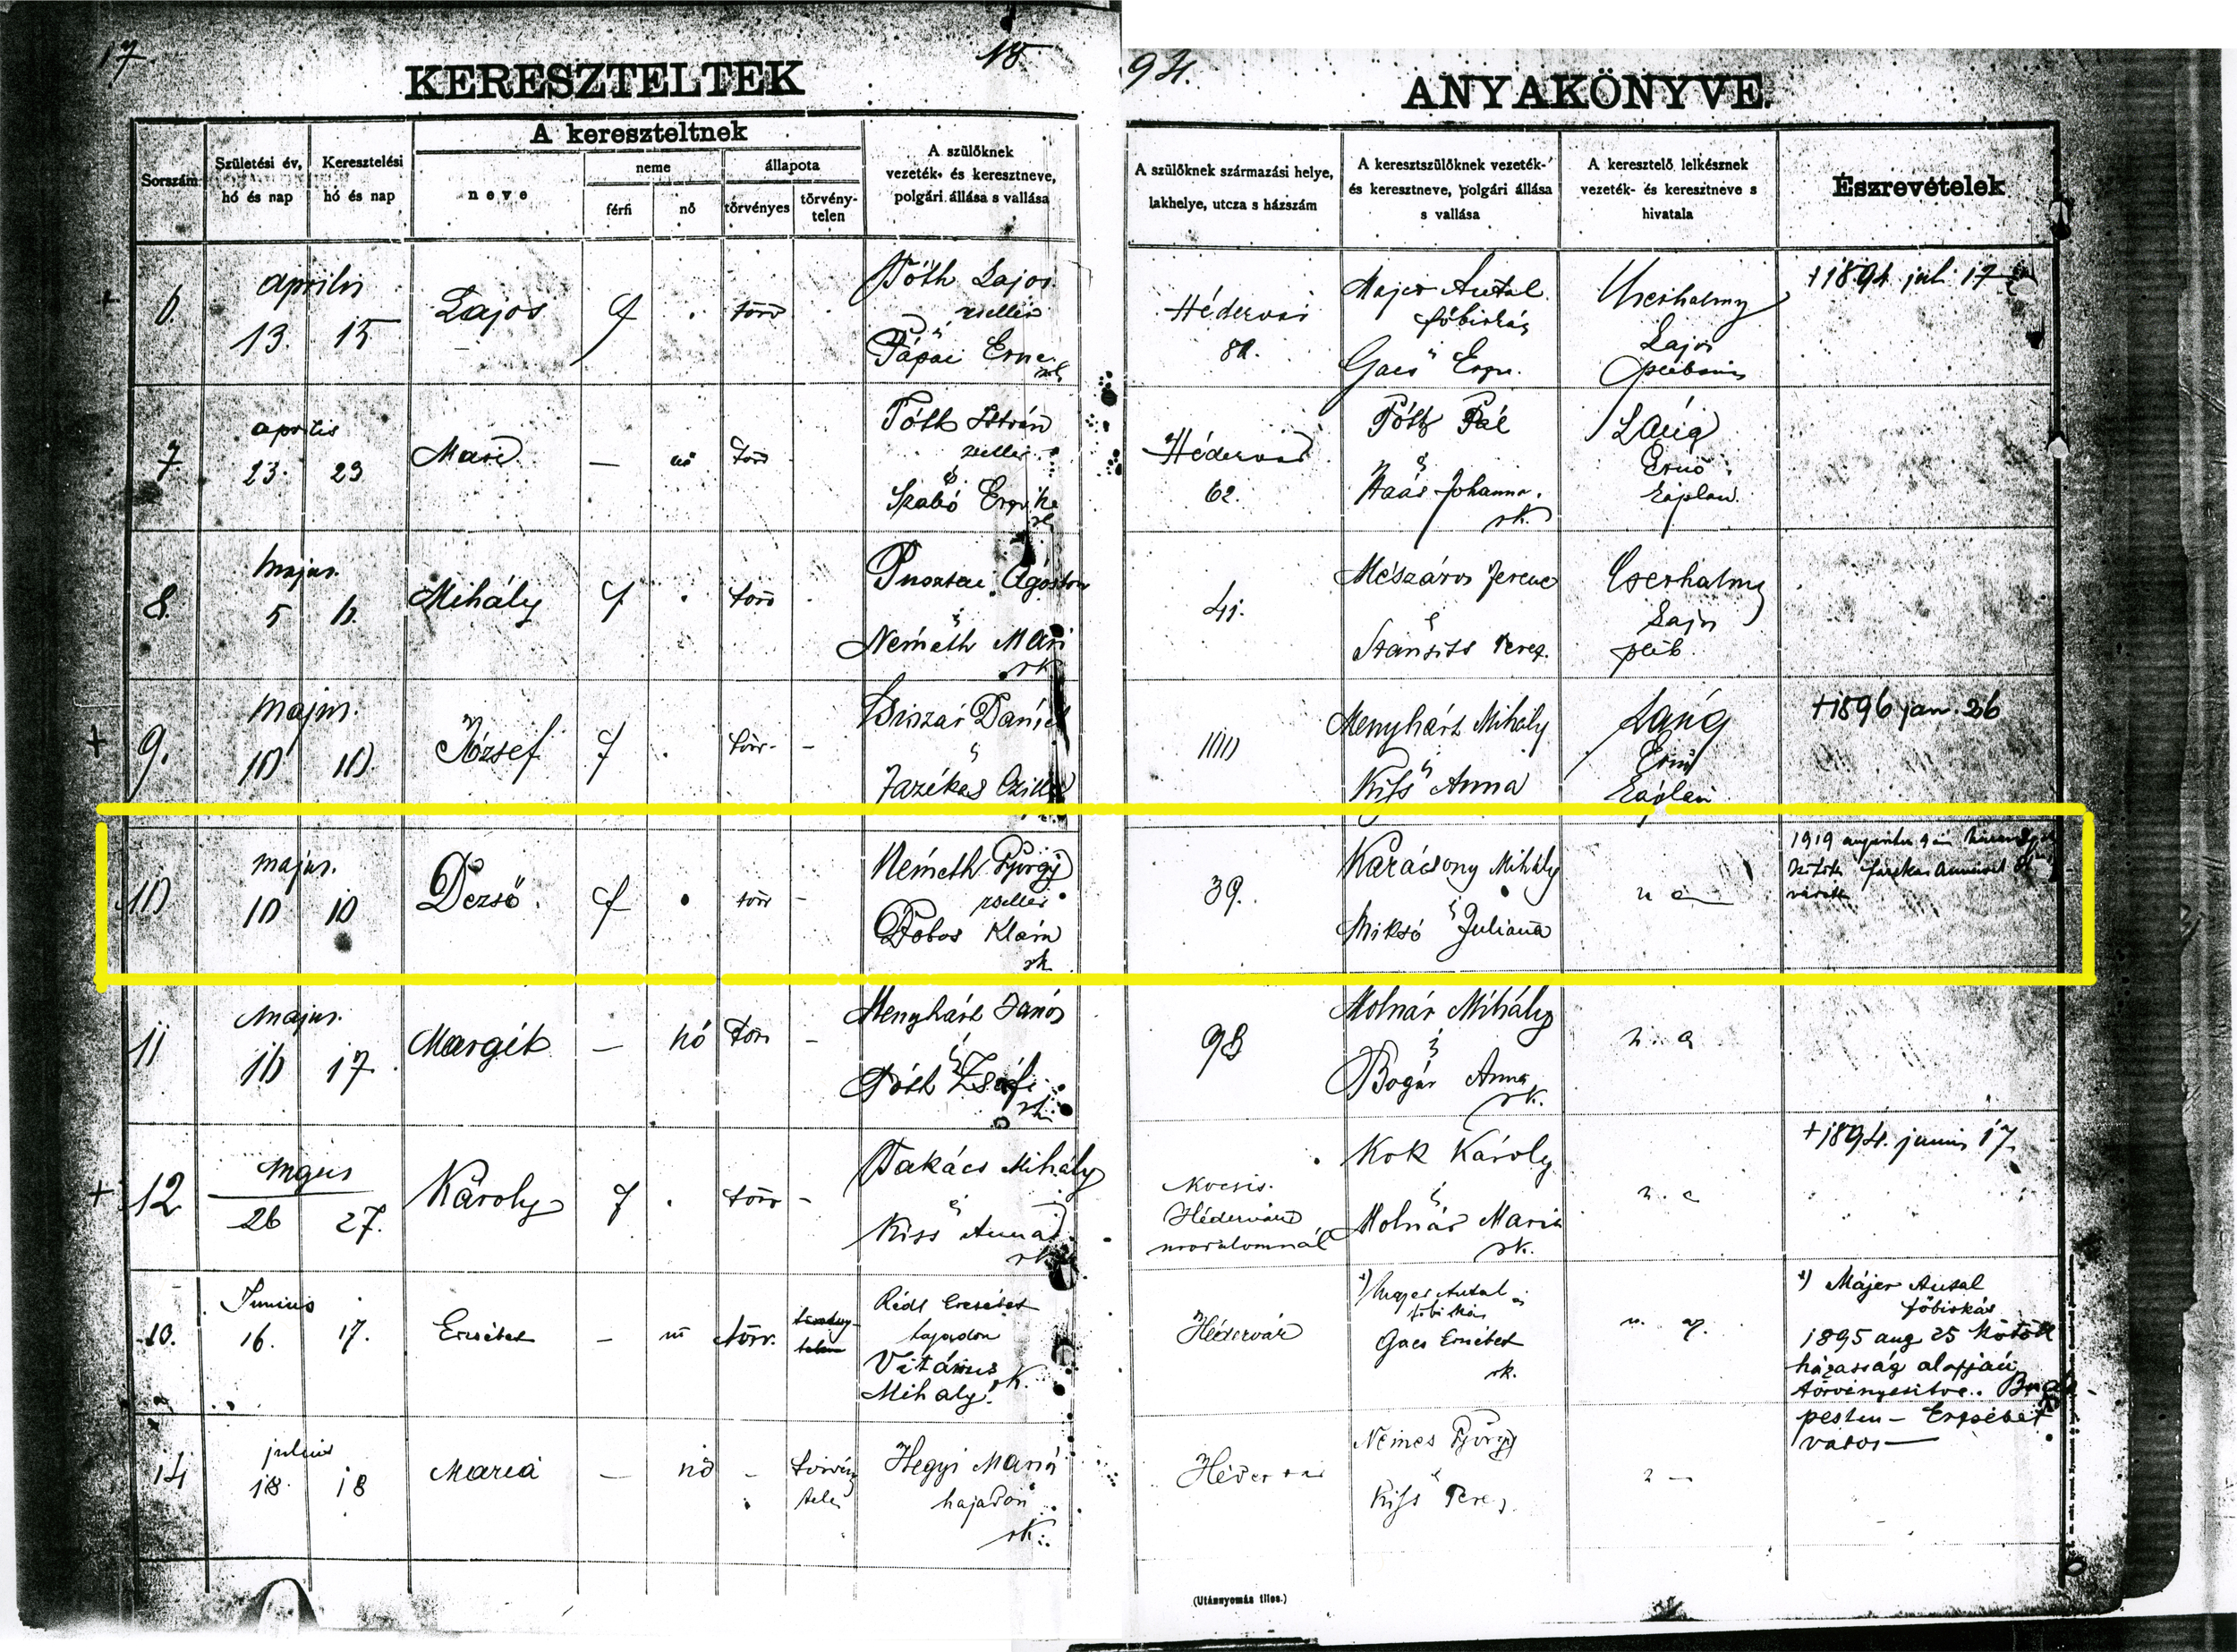 17 18 94.
KERESZTELTEK ANYAKÖNYVE.
Sorszám
Születési év, hó és nap
Keresztelési hó és nap
A kereszteltnek
neve
neme
férfi
nő
állapota
törvényes
törvény-telen
A szülőknek
vezeték- és keresztneve,
polgári állása s vallása
A szülőknek származási helye,
lakhelye, utcza s házszám
A keresztszülőknek vezeték-
és keresztneve, polgári állása
s vallása
A keresztelő lelkésznek
vezeték- és keresztneve s
hivatala
Észrevételek
+ 6. április 13. 15 Lajos f törv
Tóth Lajos
zsellér
és
Pápai Erzse
Hédervár
Majer Antal
főbirkás
és
Gacs
Lajos
plébános
+1894 juli 17
7 április 23. 23 Mari — nő törv
Tóth István
zsellér
és
Szabó
rk
Hédervár
62.
Tóth Pál
és
Haás Johanna.
rk.
Láng
Ernő
káplán.
8. május. 5 6. Mihály f törv
Pusztai Ágoston
és
Németh Mári
rk
41.
Mészáros Ferenc
és
Terez.
Cserhalmy
Lajos
pléb.
+ 9. május. 10 10. József f törv. –
Dániel
és
Fazékas
100
Menyhárt Mihály
és
Kiss Anna
Láng
Ernő
káplán
+1896 jan. 26
10 május. 10 10 Dezső. f törv –
Németh György
zsellér
Dobos Klára
rk
39.
Karácsony Mihály
és
Miksó Juliana
u a
1919 augusztus 9 én
kötött Farkas Annával
11 május. 16 17. Margit – nő törv –
Menyhárt János
és
Tóth Zsófi
rk.
98
Molnár Mihály
és
Bogár Anna
rk.
u. a
+ 12 május 26 27. Károly f törv –
Takács Mihály
és
Kiss Anna
rk
Kocsis.
Hédervári
malomnál
Kok Károly
és
Molnár Maria
rk.
u. a
+1894. junius 17.
13. Junius 16. 17. Erzsébet – nő törv. törvény-telen
Rédl Erzsébet
hajadon
Vitárius
Mihály rk.
Hédervár
*) Antal
főbirkás és
Gacs Erzsébet
rk.
u. a.
*) Májer Antal
főbirkás
1895 aug 25 kötött
házasság alapján
törvényesitve. Buda-
pesten – Erzsébet
város —
14 julius 18. 18 Maria — nő – törvény telen
Hegyi Mariá
hajadon
rk.
Hédervár
Nemes György
és
Kiss Terez.
(Utánnyomás tilos.)